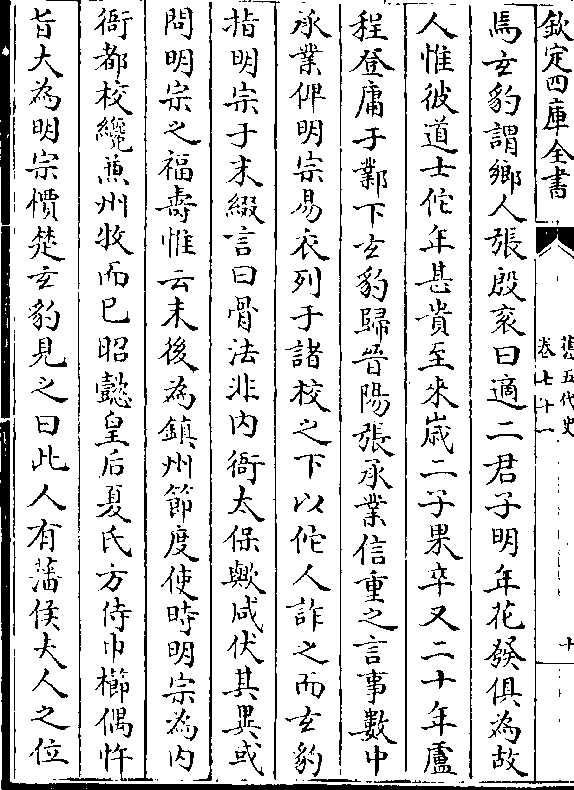 欽定四庫全書
舊五代史
卷七十一
十
焉玄豹謂鄉人張殷衮曰適二君子明年花發俱為故
人惟彼道士佗年甚貴至來歲二子果卒又二十年盧
程登庸于鄴下玄豹歸晉陽張承業信重之言事數中
承業俾明宗易衣列于諸校之下以佗人詐之而玄豹
指明宗于末綴言曰骨法非内衙太保歟咸伏其異或
問明宗之福壽惟云末後為鎮州節度使時明宗為内
衙都校纔兼州牧而已昭懿皇后夏氏方侍巾櫛偶忤
旨大為明宗檟楚玄豹見之曰此人有藩侯夫人之位